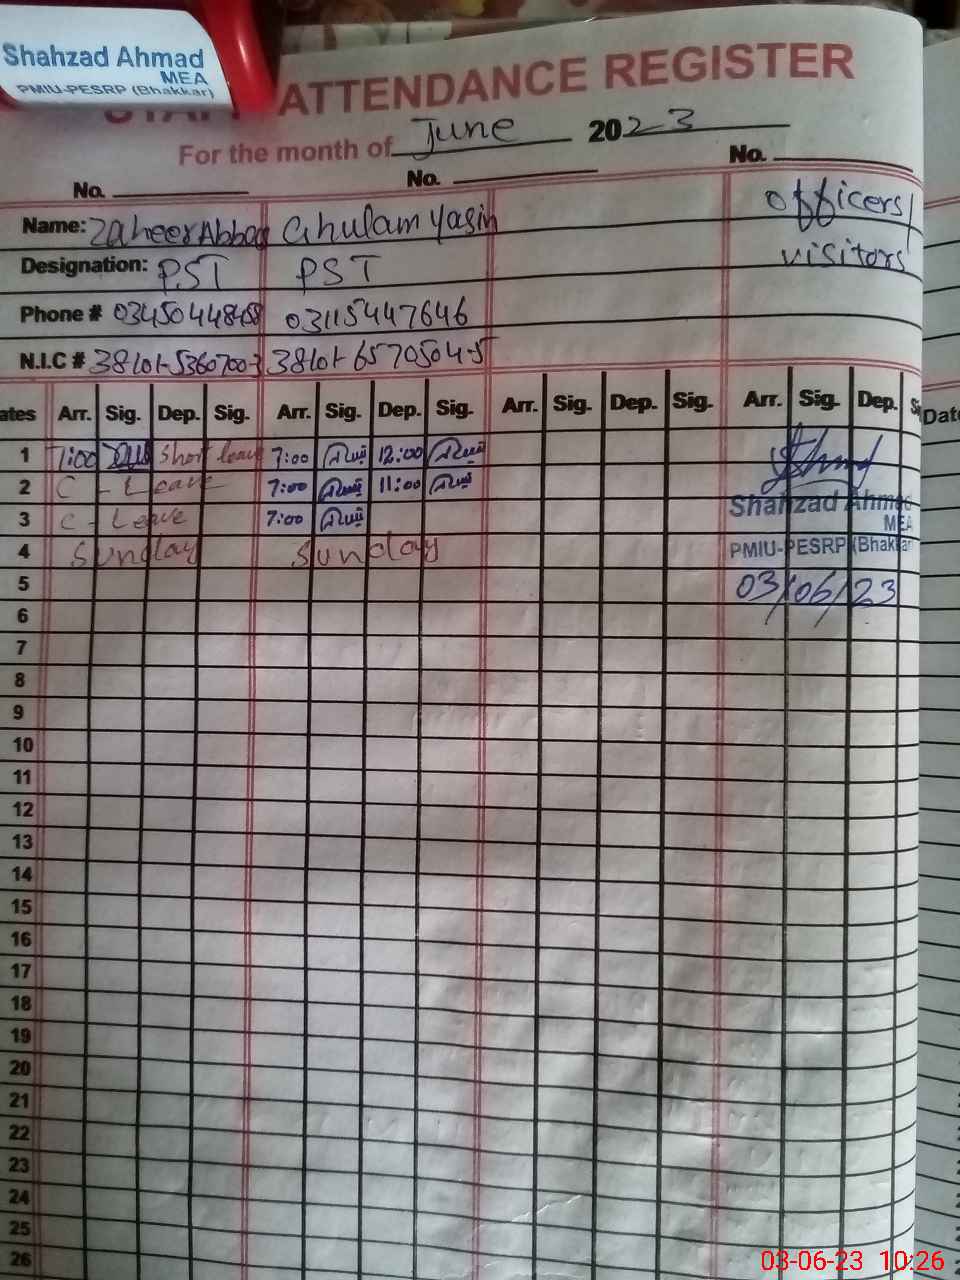 Shahzad Ahmad
MEA
PMIU-PESRP (Bhakkar)
STAFF ATTENDANCE REGISTER
For the month of June 2023
No. No. No.
Name: Zaheer Abbas Ghulam Yasin officers/
visitors
Designation: PST PST
Phone # 03115447646
N.I.C # 38101-5360700-3 38101-6570504-5
ates Arr. Sig. Dep. Sig. Arr. Sig. Dep. Sig. Arr. Sig. Dep. Sig. Arr. Sig. Dep. Date
1 7:00 Short leave 7:00 12:00
2 C - Leave 7:00 11:00
Shahzad Ahmad
MEA
3 C - Leave 7:00
4 Sunday Sunday
PMIU-PESRP (Bhakkar
5 03/06/23
6
7
8
9
10
11
12
13
14
15
16
17
18
19
20
21
22
23
24
25
26
03-06-23 10:26